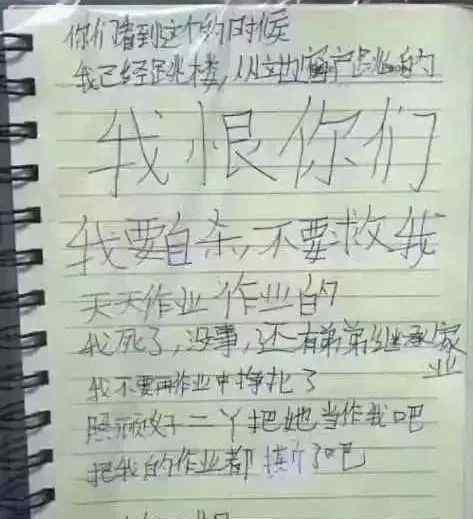 你们看到这个的时候
我已经跳楼，从这边窗户跳的
我恨你们
我要自杀，不要救我
天天作业作业的
我死了，没事，还有弟弟继承家业
我不要再作业中挣扎了
照顾好二丫把她当作我吧
把我的作业都撕了吧